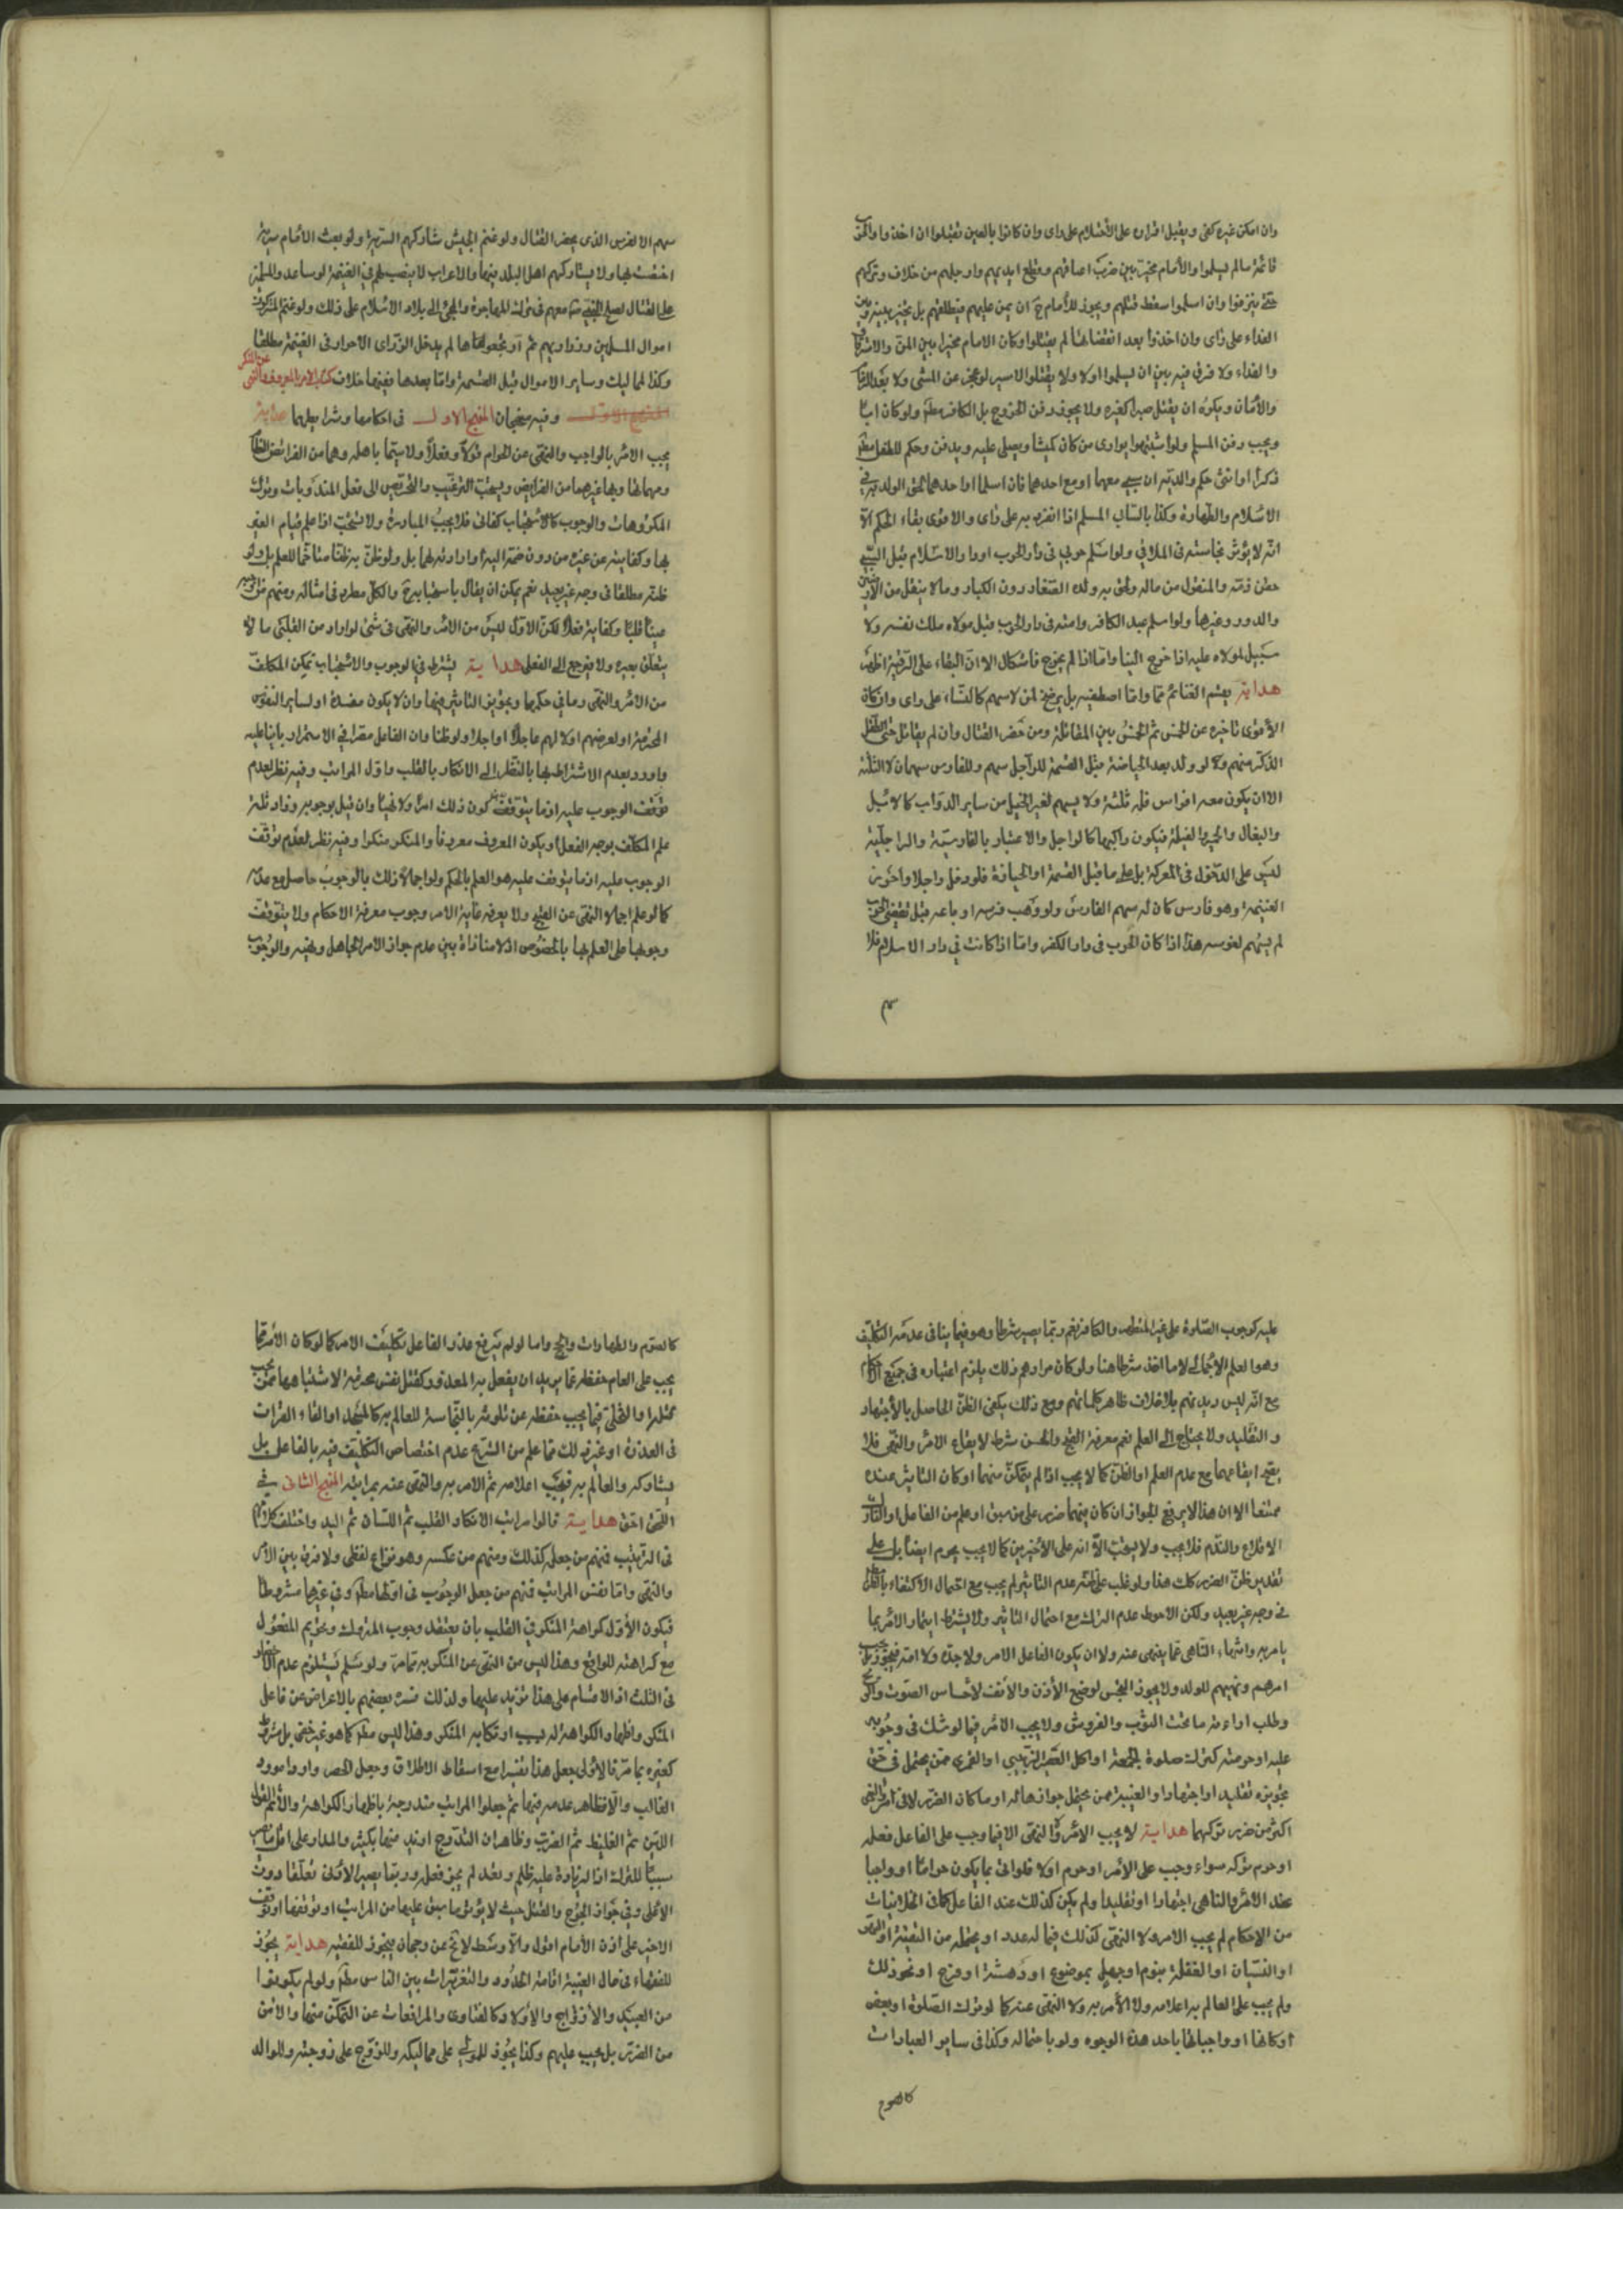 وان امكن غيره كفى ويقبل اقراره على الأحتلام على راى وان كانوا بالغين تقتلوا ان اخذوا والحرب
قائمة مالم يسلموا والأمام مخير بين ضرب اعناقهم وقطع ايديهم وارجلهم من خلاف وتركهم
حتى ينزفوا وان اسلموا سقط قتلهم ويجوز للأمام ح ان يمن عليهم فيطلقهم بل يخير بينه وبين
الفداء على راى وان اخذوا بعد انقضائها لم يقتلوا وكان الامام مخيرا بين المن والاسترقاق
والفداء ولا فرق فيه بين ان يسلموا اولا ولا يقتلوا الاسير لو عجز عن المشى ولا بعد الذمام
والأمان ويكره ان يقتل صبرا كغيره ولا يجوز دفن الحربى بل الكافر مطلقا ولو كان ابا
ويجب دفن المسلم ولو اشتبهوا يوارى من كان كميشا ويصلى عليه ويدفن وحكم للطفل مطم
ذكرا او انثى حكم والديه ان سبى معهما او مع احدهما فان اسلما او احدهما لحق الولد به في
الاسلام والطهارة وكذا بالسابى المسلم اذا انفرد به على راى والاقوى بقاء الحكم الا
انه لا يؤثر نجاسته فى الملاقي ولو اسلم حربي فى دار الحرب او دار الاسلام قبل السبي
حقن دمه والمنقول من ماله ولحق به ولده الصغار دون الكبار وما لا ينقل من الارضين
والدور وغيرها ولو اسلم عبد الكافر وامته فى دار الحرب قبل مولاه ملك نفسه ولا
سبيل لمولاه عليه اذا خرج الينا واما اذا لم يخرج فاشكال الا ان البقاء على الرقية اظهر
هداية يقسم الغنائم مما اصطفيه بل يرضخ لمن لا سهم له كالنساء على راى وان كان
الأقوى تاخيره عن الخمس ثم الخمس بين المقاتلة ومن حضر القتال وان لم يقاتل حتى الطفل
الذكر منهم ولو ولد بعد الحيازة قبل القسمة للراجل سهم وللفارس سهمان لا الثلثة
الا ان يكون معه افراس فله ثلثة ولا يسهم لغير الخيل من ساير الدواب كالابل
والبغال والحمير والفيلة فيكون راكبها كالراجل والاعتبار بالفارسية والراجلية
ليس على الدخول فى المعركة بل على ما قبل القسمة او الحيازة فلو دخل راجلا واحرزت
الغنيمة وهو فارس كان له سهم الفارس ولو وهب فرسه او باعه قبل تقضى الحرب
لم يسهم لفرسه هذا اذا كان الحرب فى دار الكفر واما اذا كانت في دار الاسلام فلا
سهم
سهم الا لفرس الذى يحضر القتال ولو غنم الجيش شاركهم السرية ولو بعث الأمام سرية
اختصت بها ولا يشاركهم اهل البلد فيها والاعراب لا نصيب لهم في الغنيمة لو ساعدوا المسلمين
على القتال لصلح النبي ص معهم فى ترك المهاجرة والمجئ الى بلاد الاسلام على ذلك ولو غنم المشركون
اموال المسلمين وذراريهم ثم ارتجعوها لم يدخل الذرارى الاحرار فى الغنيمة مطلقا
وكذا المماليك وساير الاموال قبل القسمة واما بعدها ففيها خلاف كتاب الامر بالمعروف والنهى عن المنكر
وفيه منهجان المنهج الاول فى احكامها وشرايطهما هداية
يجب الامر بالواجب والنهى عن الحرام قولا وفعلا ولا سيما باهله وهما من الفرائض العظام
ومهماتها وبها غيرهما من الفرايض ويستحب الترغيب والتحريص الى فعل المندوبات وترك
المكروهات والوجوب كالاستحباب كفائى فلا يجب المبادرة ولا تستحب اذا علم قيام الغير
بها وكفايته عن غيره من دون ضمه اليه او ارادته لهما بل ولو ظن به ظنا متاخما للعلم بل ولو
ظنه مطلقا فى وجه غير بعيد نعم يمكن ان يقال باستحبابه ح والكل مطرد فى امثاله ومنهم من اوجبه
عينا قلبا وكفاية فعلا لكن الاول ليس من الامر والنهى فى شئ لو اراد من القلبى ما لا
يتعلق بغيره ولا فيرجع الى الفعلى هداية يشترط في الوجوب والاستحباب تمكن المكلف
من الامر والنهى وما في حكمهما وتجويز التاثير فيهما وان لا يكون مفسدة او لساير النفوس
المحترمة او لعرضهم او لا لهم عاجلا او اجلا ولو ظنا وان الفاعل مصرا في الاستمرار بانيا عليه
واورد بعدم الاشتراط بها بالنظر الى الانكار بالقلب واول المراتب وفيه نظر لعدم
توقف الوجوب عليه انما يتوقف كون ذلك امرا ولا نهيا وان قيل بوجوبه وزاد ثلثة
علم المكلف بوجه الفعل او يكون المعروف معروفا والمنكر منكرا وفيه نظر لعدم توقف
الوجوب عليه انما يتوقف عليه هو العلم بالحكم ولو اجمالا ذلك بالوجوب حاصل مع عدمه
كما لو علم اجمالا النهى عن القبح ولا يعرفه غاية الامر وجوب معرفة الاحكام ولا يتوقف
وجوبها على العلم بها بالخصوص اذ لا منافاة بين عدم جواز الامر للجاهل ونهيه والوجوب
عليه كوجوب الصلوة على غير المتطهر والكافر نعم ربما يصير شرطا وهو فيما ينافى عدمه التكليف
وهو العلم الاجمالى لا ما اخذ شرطا هنا ولو كان مرادهم ذلك يلزم اعتباره فى جميع الاحكام
مع انه ليس ديدنهم بلا خلاف ظاهر كلماتهم ومع ذلك يكفى الظن الحاصل بالأجتهاد
والتقليد ولا يحتاج الى العلم نعم معرفة القبح والحسن شرط لايقاع الامر والنهى فلا
يقع ايقاعهما مع عدم العلم او الظن كما لا يجب اذا لم يتمكن منهما او كان التاثير عنده
ممتنعا الا ان هذا لا يرفع الجواز ان كان فيهما ضرر على من سبق او علم من الفاعل او التارك
الاقلاع والندم فلا يجب ولا يستحب الا انه على الأخيرين كما لا يجب يحرم ايضا بل على
تقدير ظن الضرر كك هذا ولو غلب على ظنه عدم التاثير لم يجب مع احتمال الأكتفاء بالظن
فى وجه غير بعيد ولكن الاحوط عدم الترك مع احتمال التاثير ولا يشترط ايتمار الامر بما
يامر به وانتهاء الناهى عما ينهى عنه ولا ان يكون الفاعل الامر ولا جده ولا امه فيجوز بل يجب
امرهم ونهيهم للولد ولا يجوز التجسس لوضع الأذن والأنف لأحساس الصوت والريح
وطلب اراءة ما تحت الثوب والفروش ولا يجب الامر فيما لو شك فى وجوبه
عليه او حرمته كترك صلوة الجمعة او اكل العصير الزبيبى او التمرى ممن يحتمل فى حقه
تجويزه تقليدا او اجتهادا والغيبة ممن يحتمل جوازها له او ما كان الضرر لاق امر والنهى
اكثر من ضرر تركهما هداية لا يجب الامر والنهى الا فيما وجب على الفاعل فعله
او حرم تركه سواء وجب على الأمر او حرم او لا فلو اتى بما يكون حراما او واجبا
عند الأمر والناهى اجتهادا او تقليدا ولم يكن كذلك عند الفاعل كما فى الخلافيات
من الاحكام لم يجب الامر ولا النهى كذلك فيما له عذر او يحتمله من التقية او السهو
او النسيان او الغفلة بنوم او جهل بموضوع او دهشة او فزع او نحو ذلك
ولم يجب على العالم به اعلامه ولا الأمر به ولا النهى عنه كما لو ترك الصلوة او بعض
اركانها او واجباتها باحد هذه الوجوه ولو باحتماله وكذا فى ساير العبادات
كالصوم
كالصوم والطهارات والحج واما لو لم يرفع عذر الفاعل تكليف الامر كما لو كان الأمر مما
يجب على العام حفظه عما يريد ان يفعل به المعذور كقتل نفس محترمة لاشتباهها بمن يجب
قتله او التخلى فيما يجب حفظه عن تلوثه بالنجاسة للعالم به كالمسجد او القاء القران
فى العذرة او غير ذلك مما علم من الشرع عدم اختصاص التكليف فيه بالفاعل بل
يشاركه والعالم به فيجب اعلامه ثم الامر به والنهى عنه بمراتبه المنهج الثانى في
اللتى اخذ هداية قالوا مراتب الانكار القلب ثم اللسان ثم اليد واختلف كلامهم
فى الترتيب فمنهم من جعله كذلك ومنهم من عكسه وهو نزاع لفظى ولا فرق بين الأمر
والنهى واما نفس المراتب فمنهم من جعل الوجوب فى اولها مطم وفى غيرها مشروطا
فيكون الأول كراهة المنكر في القلب بان يعتقد وجوب المتروك وتحريم المفعول
مع كراهته للواقع وهذا ليس من النهى عن المنكر به تمامه ولو سلم يستلزم عدم الانحصار
فى الثلث اذ الاقسام على هذا تزيد عليها ولذلك فسره بعضهم بالاعراض عن فاعل
المنكر واظهار الكراهة له بسبب ارتكابه المنكر وهذا ليس مطم كما هو غير خفى بل مشروط
كغيره بما مر فالأولى جعل هذا تفسيرا مع اسقاط الاطلاق وجعل الحصر واردا مورد
الغالب والا فظاهر عدمه فيها ثم جعلوا المراتب مندرجة باظهار الكراهة والأثم القول
اللين ثم الغليظ ثم الضرب وظاهر ان التدرج ازيد منها بكثير والمدار على اقل ما يصير
سببا للترك اذ الزيادة عليه ظلم وتعد لم يجز فعله وربما يصير الأدنى تعلقا دون
الأعلى وفى جواز الجرح والقتل حيث لا يؤثر ما سبق عليها من المراتب او توقفها او توقف
الاخير على اذن الامام اقول والا وسط لا يخ عن رجحان فيجوز للفقيه هداية يجوز
للفقهاء فى حال الغيبة اقامة الحدود والتعزيرات بين الناس مطم ولو لم يكونوا
من العبيد والأزواج والأولاد كالفتاوى والمرافعات عند التمكن منها والأمن
من الضرر بل يجب عليهم وكذا يجوز للمولى على مماليكه وللزوج على زوجته وللوالد